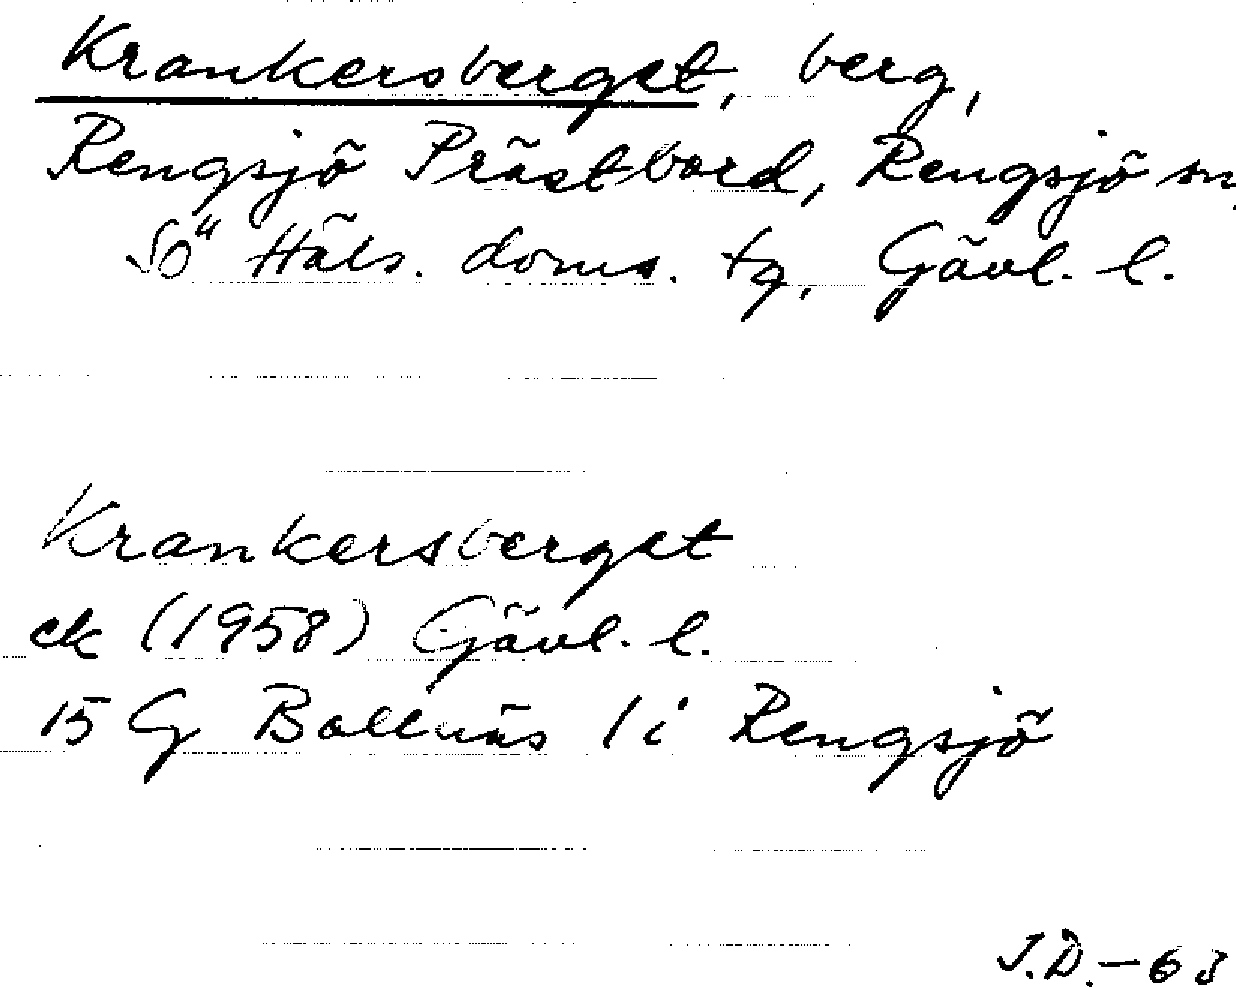 Krankersberget, berg,
Rengsjö Prästbord, Rengsjö sn,
Sö Häls. doms. tg, Gävl. l.
Krankersberget
ek (1958) Gävl. l.
15 G Bollnäs 1 i Rengsjö
J.D.-63